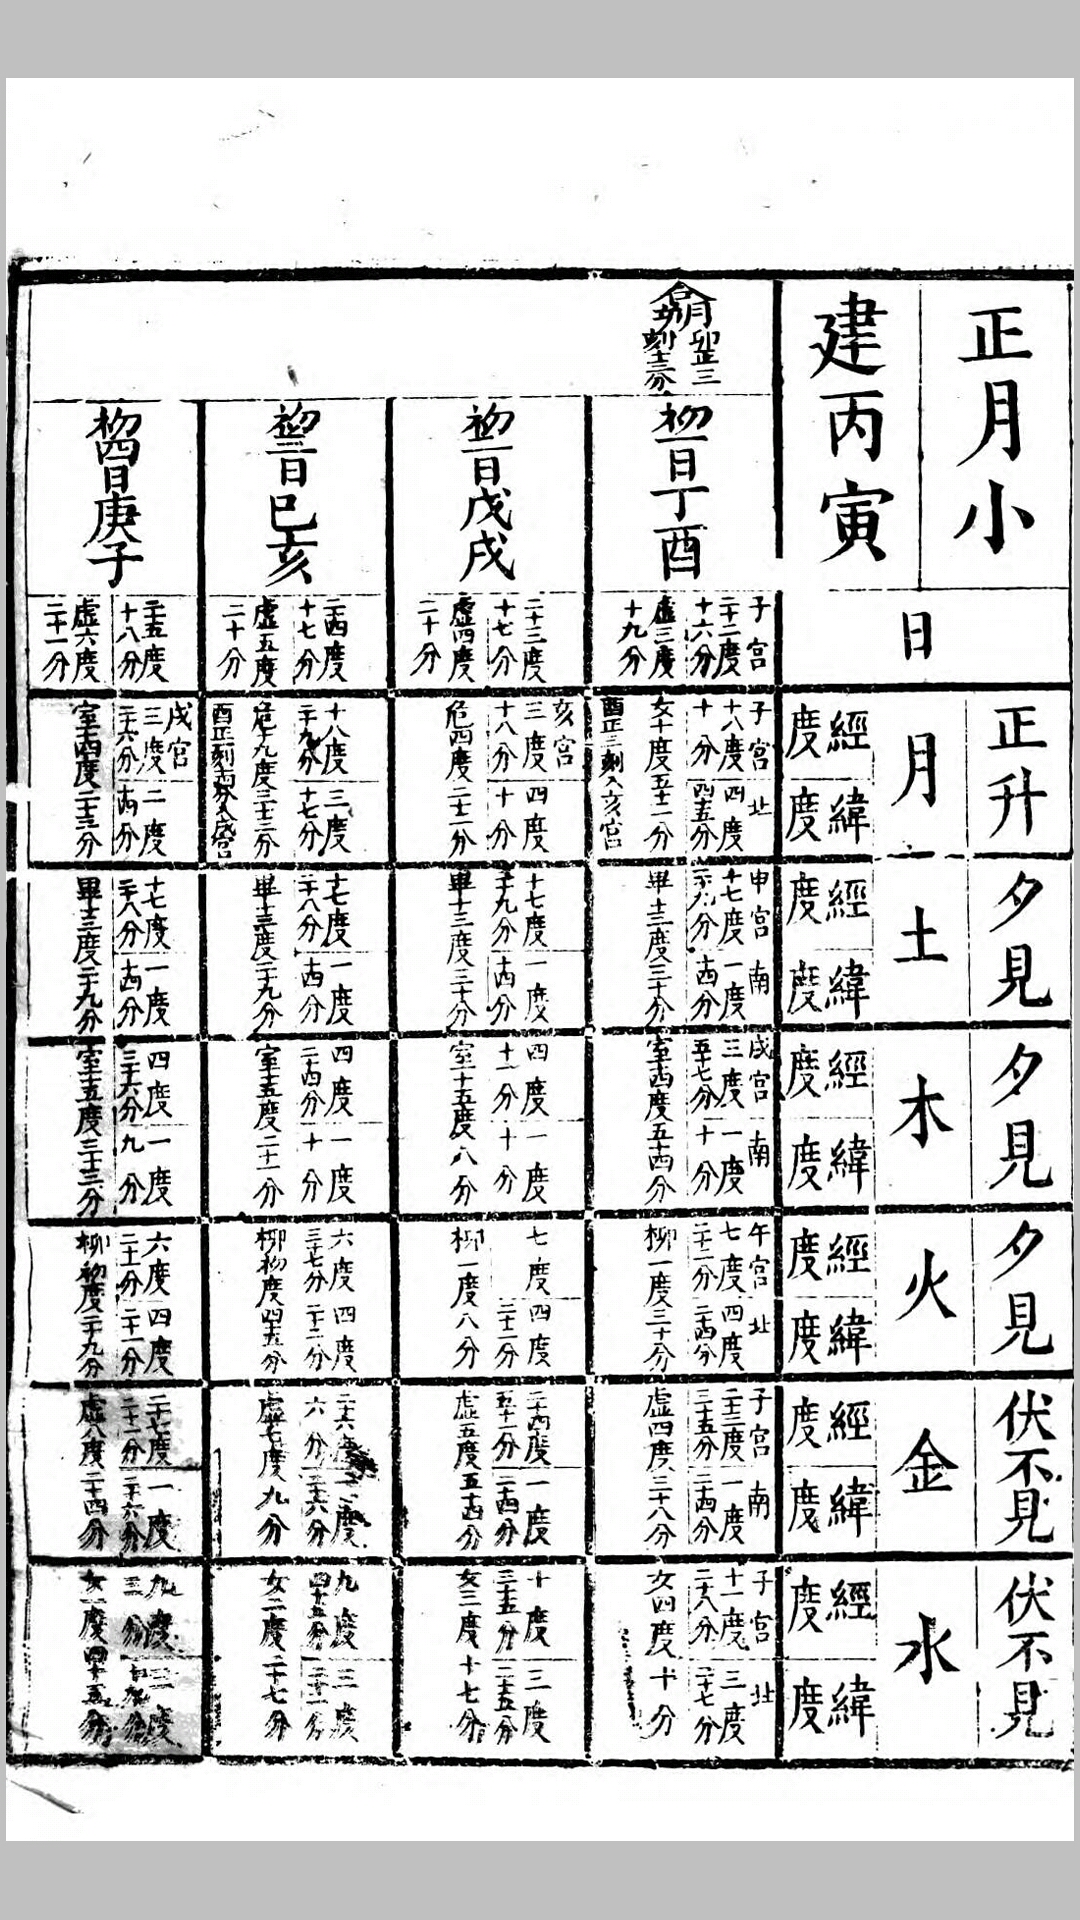 正月小
建丙寅
日
正升
月
經度
緯度
夕見
土
經度
緯度
夕見
木
經度
緯度
夕見
火
經度
緯度
伏不見
金
經度
緯度
伏不見
水
經度
緯度
合朔
初一日丁酉
子宮
二十二度
十六分
虛三度
十九分
子宮
十八度
十分
北
四度
四十五分
女十度五十一分
酉正三刻入亥宮
申宮
十七度
南
一度
十四分
畢十三度三十分
戌宮
三度
五十七分
南
一度
十分
室十四度五十四分
午宮
七度
二十二分
北
四度
二十四分
柳一度三十分
子宮
二十三度
三十五分
南
一度
二十四分
虛四度三十八分
子宮
十一度
二十八分
北
三度
二十七分
女四度十分
初二日戊戌
二十三度
十七分
虛四度
二十分
亥宮
三度
十八分
四度
十分
危四度二十二分
十七度
二十九分
一度
十四分
畢十三度三十分
四度
十一分
一度
十分
室十五度八分
七度
四度
二十三分
柳一度八分
二十四度
五十一分
一度
二十四分
虛五度五十四分
十度
三十五分
三度
二十五分
女三度十七分
初三日己亥
二十四度
十七分
虛五度
二十分
十八度
二十九分
三度
十七分
危十九度三十三分
十七度
二十八分
一度
十四分
畢十三度二十九分
四度
二十四分
一度
十分
室十五度二十一分
六度
三十七分
四度
二十二分
柳初度四十五分
六分
虛七度九分
九度
三度
女二度二十七分
初四日庚子
二十五度
十八分
虛六度
二十一分
戌宮
三度
二十六分
二度
十四分
室十四度二十三分
十七度
二十八分
一度
十四分
畢十三度二十九分
四度
三十六分
一度
九分
室十五度三十三分
六度
二十分
四度
二十一分
柳初度二十九分
一度
二十六分
虛八度二十四分
九度
三度